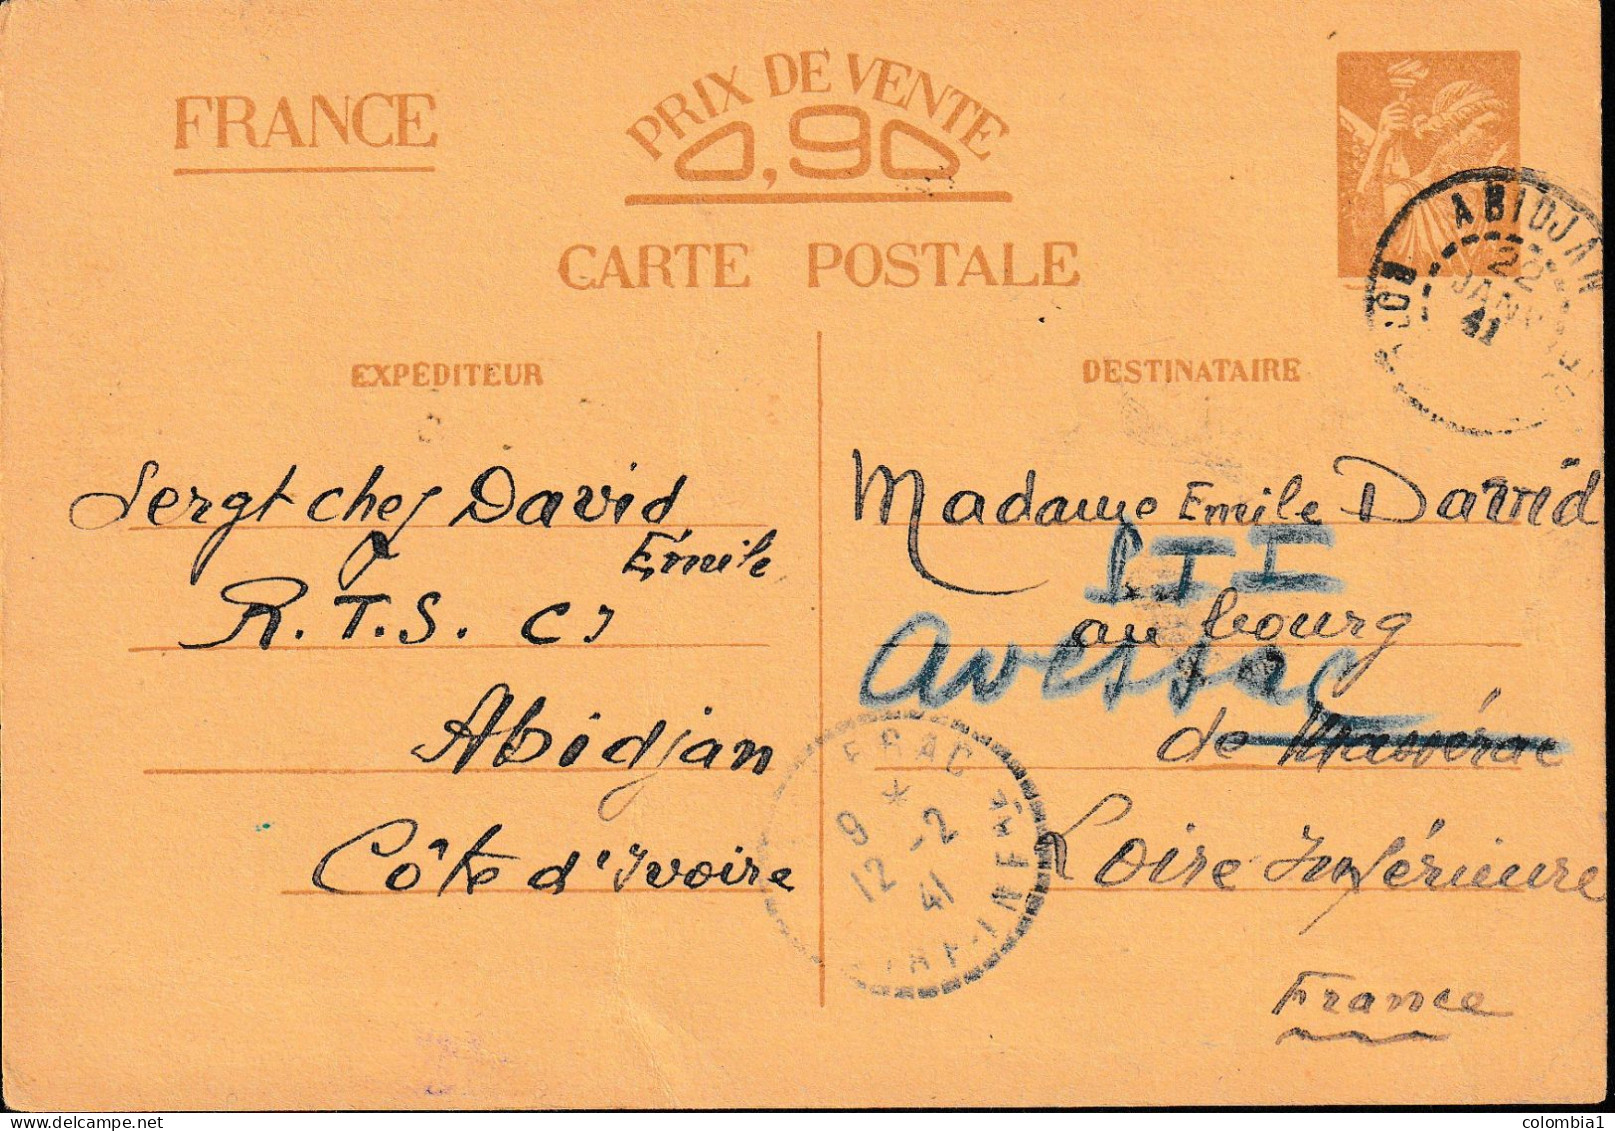 FRANCE
PRIX DE VENTE
0,90
CARTE POSTALE
ABIDJAN
22
JANV
41
EXPÉDITEUR
Sergt chef David
Émile
R.T.S. CI
Abidjan
Côte d'Ivoire
DESTINATAIRE
Madame Emile David
au bourg
Avessac
de Massérac
Loire Inférieure
France
ERAC
9 *
12 -2
41
INFRE
colombia1